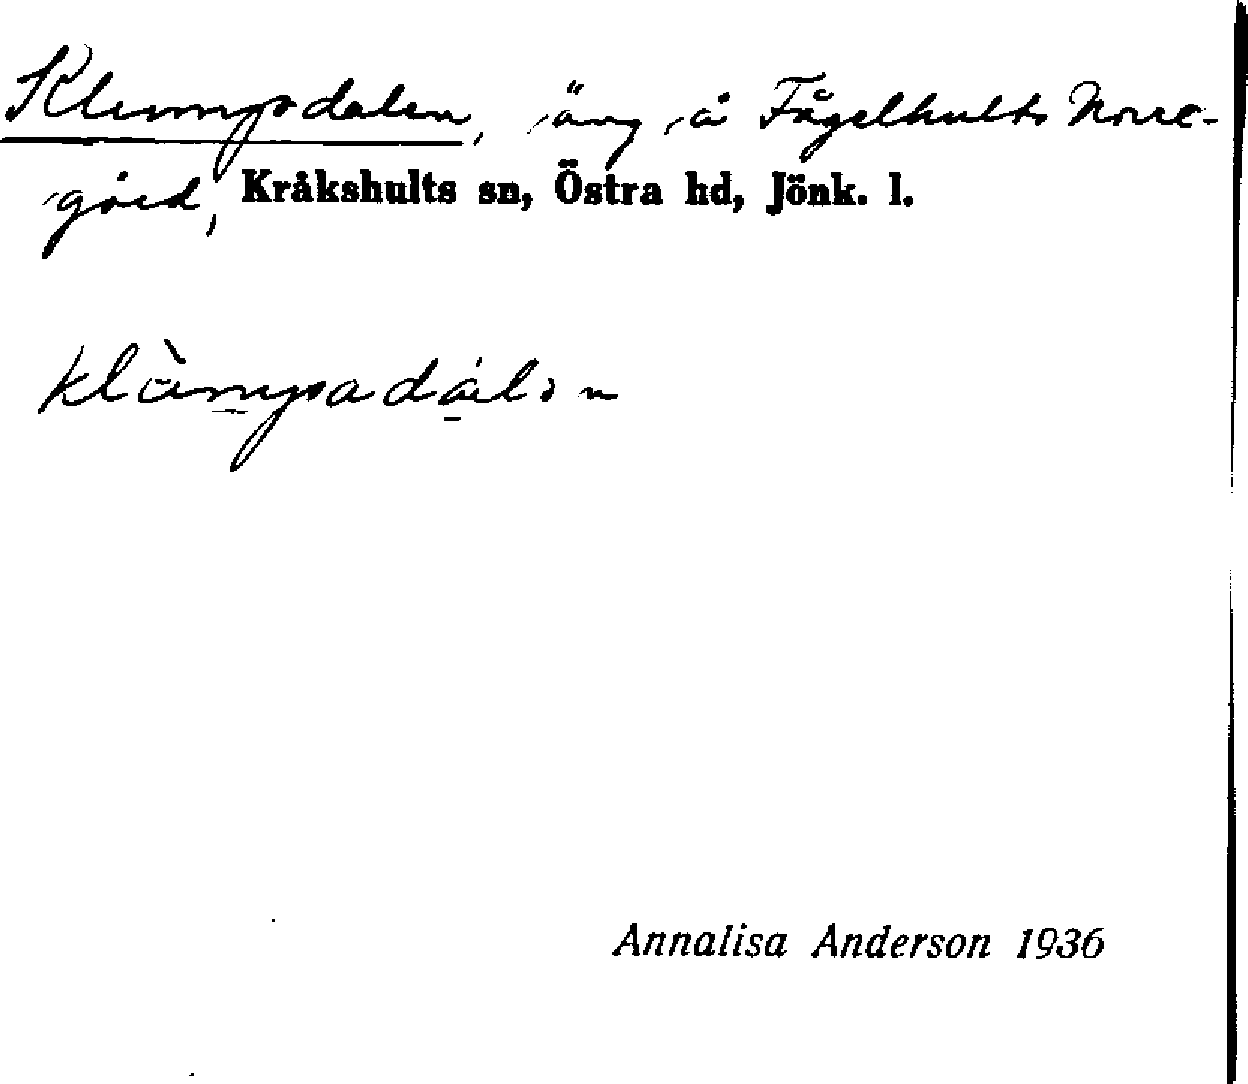 Klumpsdalen, äng å Fågelhults Norre-
gård, Kråkshults sn, Östra hd, Jönk. l.
Annalisa Anderson 1936